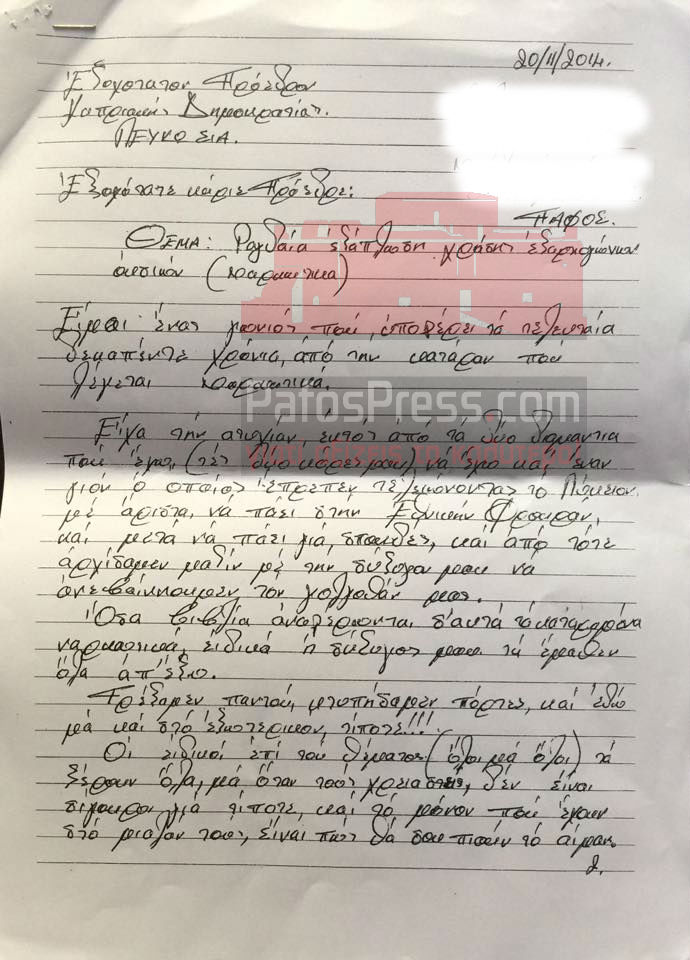 20/11/2014.
Εξοχότατον Πρόεδρον
Κυπριακής Δημοκρατίας.
ΛΕΥΚΩΣΙΑ.
Εξοχότατε κύριε Πρόεδρε:
ΠΑΦΟΣ.
ΘΕΜΑ: Ραγδαία εξάπλωση χρήσης εξαρτησιογόνων
ουσιών (ναρκωτικά)
Είμαι ένας γονιός πού, υποφέρει τά τελευταία
δεκαπέντε χρόνια, από την κατάραν πού
λέγεται ναρκωτικά.
PatosPress.com
Είχα τήν ατυχίαν, εκτός από τά δύο διαμάντια
πού έχω, (τές δύο κόρες μου) νά έχω καί έναν
γιόν ο οποίος έπρεπεν τελειώνοντας τό Λύκειον
μέ άριστα, νά πάει στην Εθνικήν Φρουράν,
καί μετά νά πάει γιά σπουδές, καί από τότε
αρχίσαμεν μαζίν μέ την σύζυγον μου να
ανεβαίννουμεν τον γολγοθάν μας.
Όσα βιβλία αναφέρωνται σ'αυτά τά καταραμένα
ναρκωτικά, ειδικά η σύζυγος μου τά έμαθεν
όλα απ'έξω.
Τρέξαμεν παντού, κτυπήσαμεν πόρτες, καί εδώ
μά καί στό εξωτερικόν, τίποτε!!!
Οι ειδικοί επί τού θέματος (όλοι μά όλοι) τά
ξέρουν όλα, μά όταν τούς χρειαστείς, δέν είναι
σίγουροι γιά τίποτε, καί τό μόνον πού έχουν
στό μυαλόν τους, είναι πώς θά σου πιούν τό αίμαν.
2.